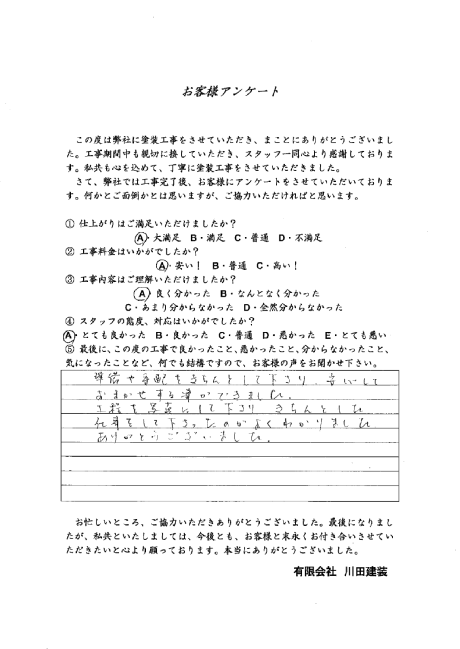 お客様アンケート
この度は弊社に塗装工事をさせていただき、まことにありがとうございまし
た。工事期間中も親切に接していただき、スタッフ一同心より感謝しておりま
す。私共も心を込めて、丁寧に塗装工事をさせていただきました。
さて、弊社では工事完了後、お客様にアンケートをさせていただいておりま
す。何かとご面倒かとは思いますが、ご協力いただければと思います。
① 仕上がりはご満足いただけましたか？
A・大満足 B・満足 C・普通 D・不満足
② 工事料金はいかがでしたか？
A・安い！ B・普通 C・高い！
③ 工事内容はご理解いただけましたか？
A・良く分かった B・なんとなく分かった
C・あまり分からなかった D・全然分からなかった
④ スタッフの態度、対応はいかがでしたか？
A・とても良かった B・良かった C・普通 D・悪かった E・とても悪い
⑤ 最後に、この度の工事で良かったこと、悪かったこと、分からなかったこと、
気になったことなど、何でも結構ですので、お客様の声をお聞かせ下さい。
準備や手配をきちんとして下さり、安心して
おまかせする事ができました。
工程を写真にして下さり きちんとした
仕事をして下さったのがよくわかりました
ありがとうございました。
お忙しいところ、ご協力いただきありがとうございました。最後になりまし
たが、私共といたしましては、今後とも、お客様と末永くお付き合いさせてい
ただきたいと心より願っております。本当にありがとうございました。
有限会社 川田建装